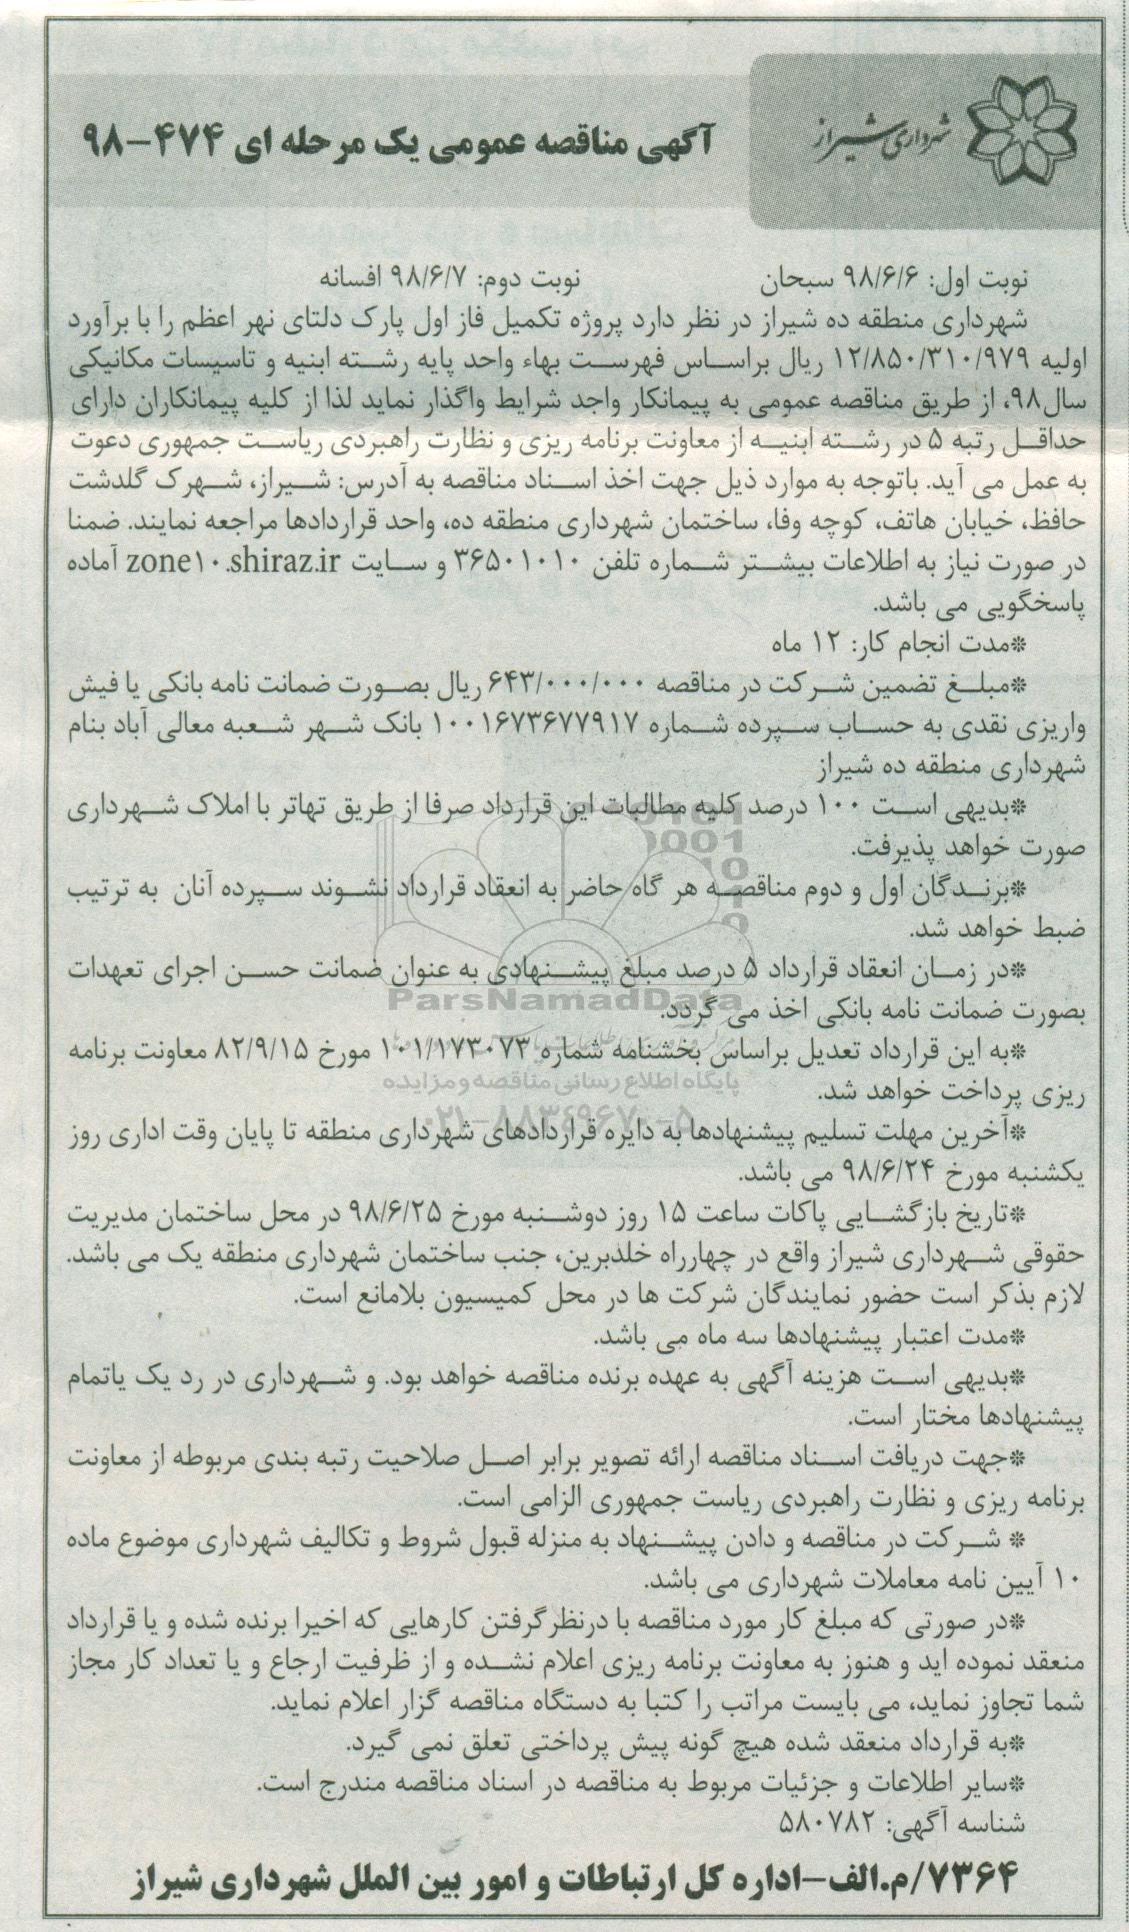 شهرداری شیراز
آگهی مناقصه عمومی یک مرحله ای ۴۷۴-۹۸
نوبت اول: ۹۸/۶/۶ سبحان نوبت دوم: ۹۸/۶/۷ افسانه
شهرداری منطقه ده شیراز در نظر دارد پروژه تکمیل فاز اول پارک دلتای نهر اعظم را با برآورد
اولیه ۱۲/۸۵۰/۳۱۰/۹۷۹ ریال براساس فهرست بهاء واحد پایه رشته ابنیه و تاسیسات مکانیکی
سال۹۸، از طریق مناقصه عمومی به پیمانکار واجد شرایط واگذار نماید لذا از کلیه پیمانکاران دارای
حداقل رتبه ۵ در رشته ابنیه از معاونت برنامه ریزی و نظارت راهبردی ریاست جمهوری دعوت
به عمل می آید. باتوجه به موارد ذیل جهت اخذ اسناد مناقصه به آدرس: شیراز، شهرک گلدشت
حافظ، خیابان هاتف، کوچه وفا، ساختمان شهرداری منطقه ده، واحد قراردادها مراجعه نمایند. ضمنا
در صورت نیاز به اطلاعات بیشتر شماره تلفن ۳۶۵۰۱۰۱۰ و سایت zone۱۰.shiraz.ir آماده
پاسخگویی می باشد.
*مدت انجام کار: ۱۲ ماه
*مبلغ تضمین شرکت در مناقصه ۶۴۳/۰۰۰/۰۰۰ ریال بصورت ضمانت نامه بانکی یا فیش
واریزی نقدی به حساب سپرده شماره ۱۰۰۱۶۷۳۶۷۷۹۱۷ بانک شهر شعبه معالی آباد بنام
شهرداری منطقه ده شیراز
*بدیهی است ۱۰۰ درصد کلیه مطالبات این قرارداد صرفا از طریق تهاتر با املاک شهرداری
صورت خواهد پذیرفت.
*برندگان اول و دوم مناقصه هر گاه حاضر به انعقاد قرارداد نشوند سپرده آنان به ترتیب
ضبط خواهد شد.
*در زمان انعقاد قرارداد ۵ درصد مبلغ پیشنهادی به عنوان ضمانت حسن اجرای تعهدات
ParsNamadData
بصورت ضمانت نامه بانکی اخذ می گردد.
*به این قرارداد تعدیل براساس بخشنامه شماره ۱۰۱/۱۷۳۰۷۳ مورخ ۸۲/۹/۱۵ معاونت برنامه
پایگاه اطلاع رسانی مناقصه و مزایده
ریزی پرداخت خواهد شد.
۰۲۱-۸۸۳۴۹۶۷۰-۵
*آخرین مهلت تسلیم پیشنهادها به دایره قراردادهای شهرداری منطقه تا پایان وقت اداری روز
یکشنبه مورخ ۹۸/۶/۲۴ می باشد.
*تاریخ بازگشایی پاکات ساعت ۱۵ روز دوشنبه مورخ ۹۸/۶/۲۵ در محل ساختمان مدیریت
حقوقی شهرداری شیراز واقع در چهارراه خلدبرین، جنب ساختمان شهرداری منطقه یک می باشد.
لازم بذکر است حضور نمایندگان شرکت ها در محل کمیسیون بلامانع است.
*مدت اعتبار پیشنهادها سه ماه می باشد.
*بدیهی است هزینه آگهی به عهده برنده مناقصه خواهد بود. و شهرداری در رد یک یاتمام
پیشنهادها مختار است.
*جهت دریافت اسناد مناقصه ارائه تصویر برابر اصل صلاحیت رتبه بندی مربوطه از معاونت
برنامه ریزی و نظارت راهبردی ریاست جمهوری الزامی است.
* شرکت در مناقصه و دادن پیشنهاد به منزله قبول شروط و تکالیف شهرداری موضوع ماده
۱۰ آیین نامه معاملات شهرداری می باشد.
*در صورتی که مبلغ کار مورد مناقصه با درنظرگرفتن کارهایی که اخیرا برنده شده و یا قرارداد
منعقد نموده اید و هنوز به معاونت برنامه ریزی اعلام نشده و از ظرفیت ارجاع و یا تعداد کار مجاز
شما تجاوز نماید، می بایست مراتب را کتبا به دستگاه مناقصه گزار اعلام نماید.
*به قرارداد منعقد شده هیچ گونه پیش پرداختی تعلق نمی گیرد.
*سایر اطلاعات و جزئیات مربوط به مناقصه در اسناد مناقصه مندرج است.
شناسه آگهی: ۵۸۰۷۸۲
۷۳۶۴/م.الف-اداره کل ارتباطات و امور بین الملل شهرداری شیراز